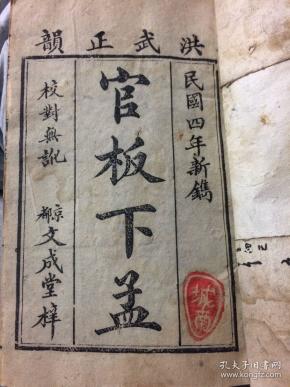 洪武正韻
民國四年新鐫
官板下孟
校對無訛
京都文成堂梓
城南
孔夫子旧书网